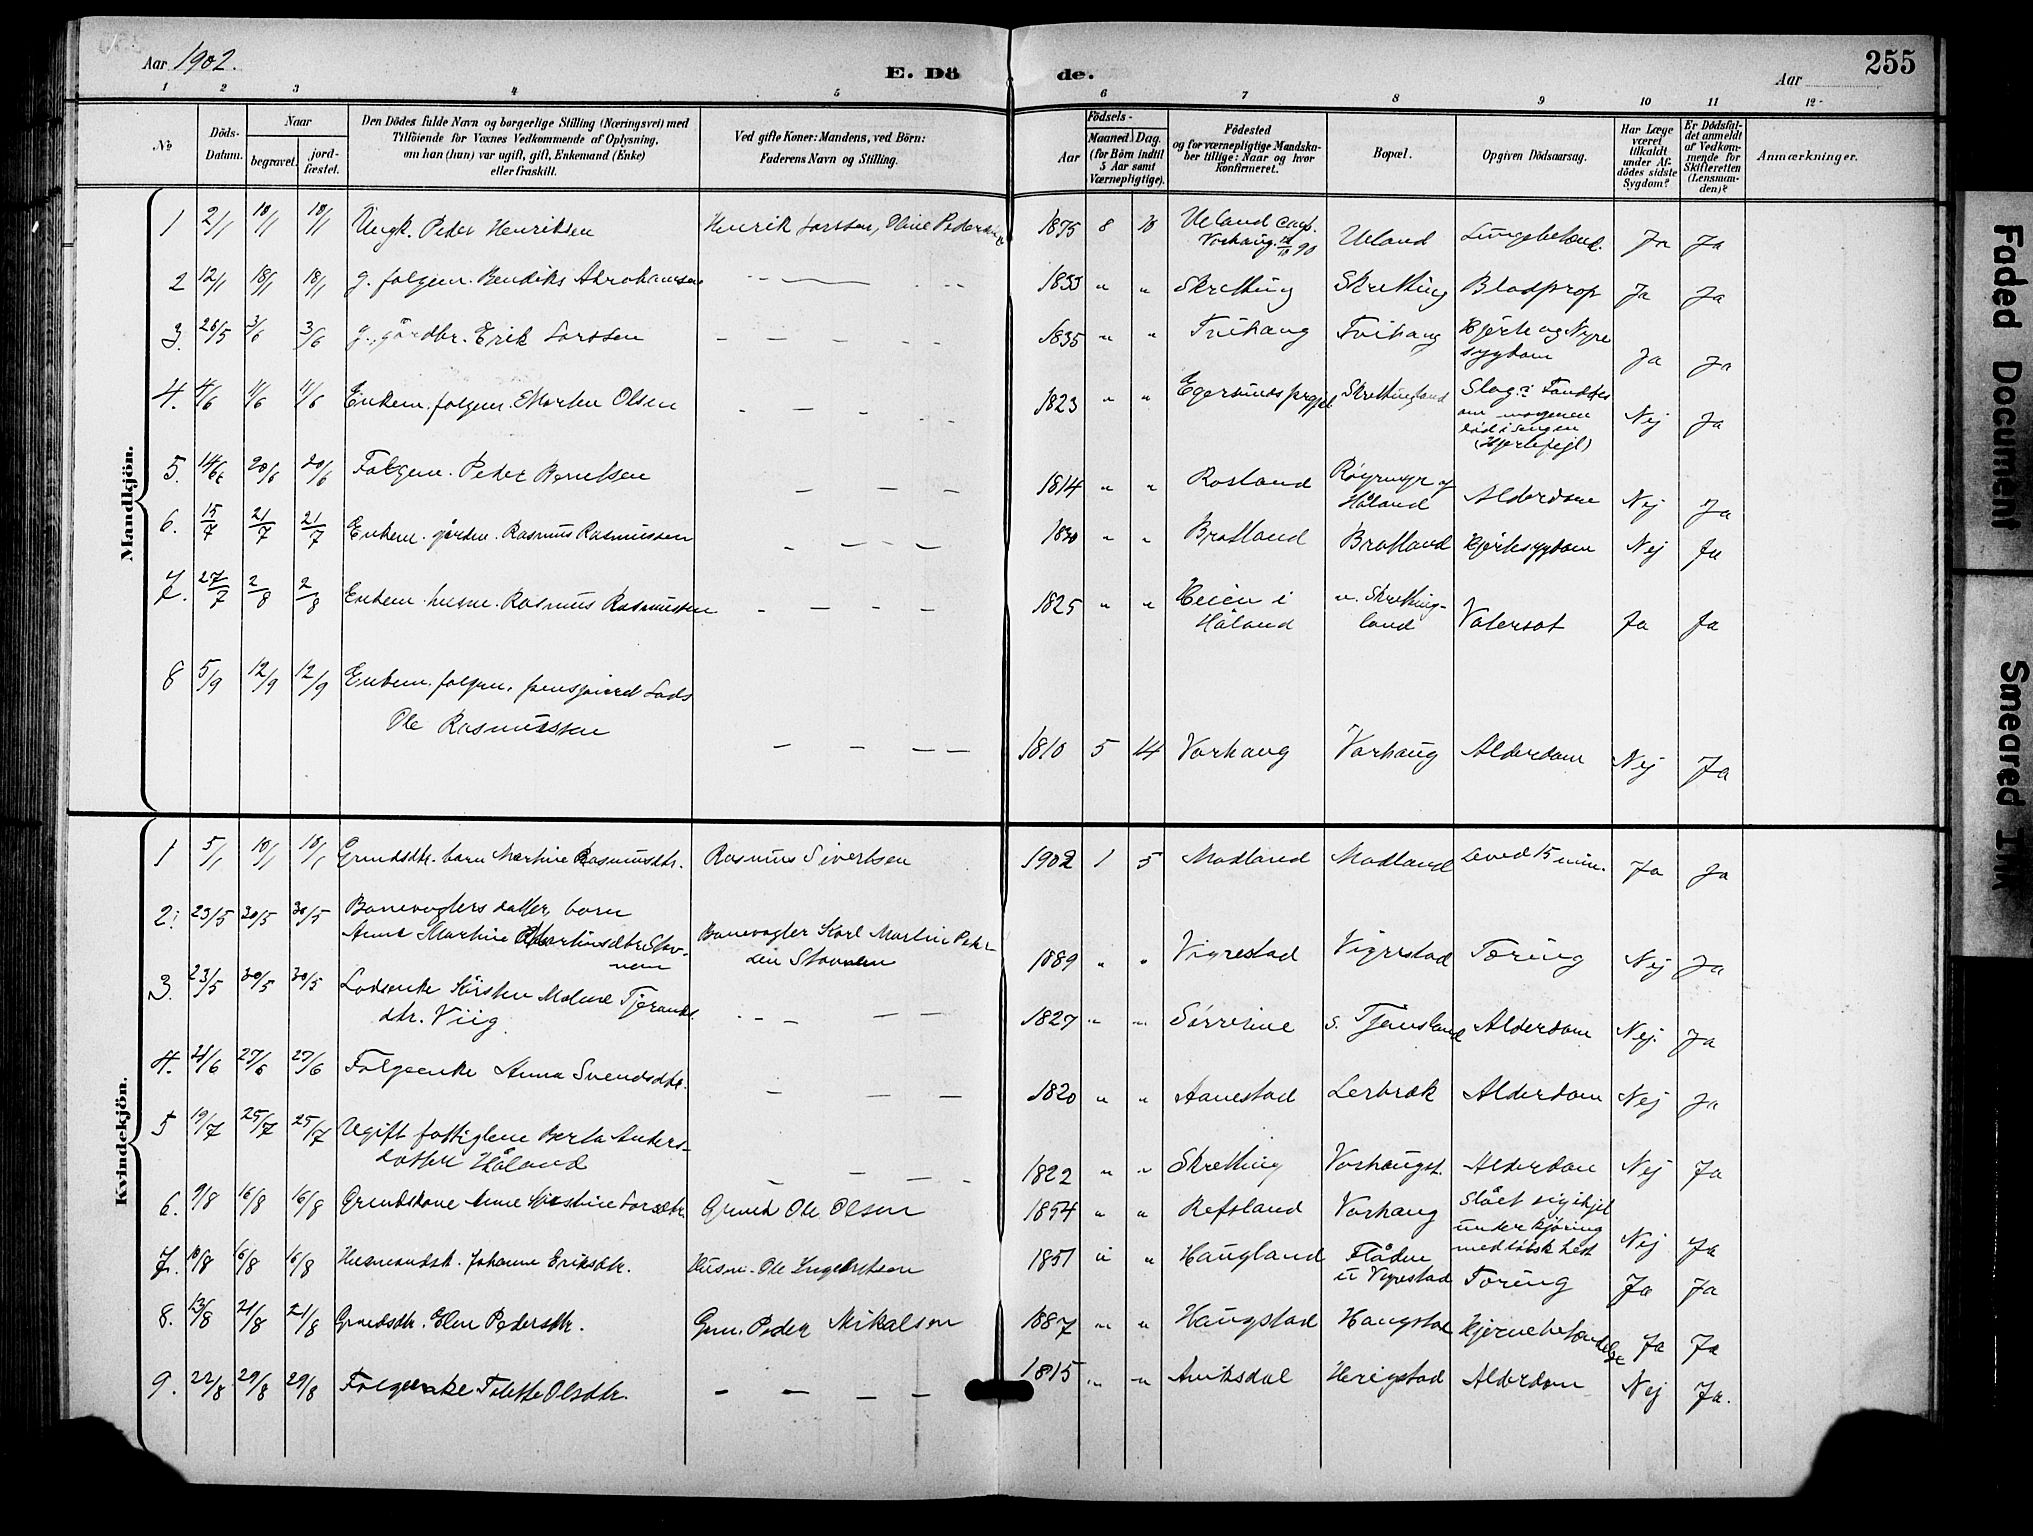 Aar 1902.
E. Dö de.
Aar
255
1 2 3 4 5 6 7 8 9 10 11 12
№
Döds-Datum.
Naar
begravet.
jord-fæstet.
Den Dödes fulde Navn og borgerlige Stilling (Næringsvei) med
Tilföiende for Voxnes Vedkommende af Oplysning,
om han (hun) var ugift, gift, Enkemand (Enke)
eller fraskilt.
Ved gifte Koner: Mandens, ved Börn:
Faderens Navn og Stilling.
Födsels-
Aar
Maaned Dag.
(for Börn indtil
5 Aar samt
Værnepligtige).
Födested
og for værnepligtige Mandska-
ber tillige: Naar og hvor
konfirmeret.
Bopæl.
Opgiven Dödsaarsag.
Har Læge
været
tilkaldt
under Af-
dödes sidste
Sygdom?
Er Dödsfal-
det anmeldt
af Vedkom-
mende for
Skifteretten
(Lensman-
den)?
Anmærkninger.
Mandkjön.
1 2/1 10/1 10/1 Ungk. Peder Henriksen Henrik Larssen, Oline 1875 8 Ueland Ueland Ja Ja
Varhaug 90
2 12/1 18/1 18/1 g. folgem. Bendiks Abrahamsen 1833 " " Skretting Skretting Blodprop Ja Ja
3. 26/5 3/6 3/6 g. gårdbr. Erik Larssen 1835 " " Tvihaug Tvihaug Hjerte og Nyre
sygdom Ja Ja
4. 4/6 11/6 11/6 Enkem. folgem. Morten Olsen 1823 " " Egersunds prgjel Skrettingland Slag? Fandtes
om morgenen
död i sengen
(Hjertefejl) Nej Ja
5. 14/6 20/6 20/6 Folgem. Peder Berntsen 1814 " " Rosland
Håland Alderdom Nej Ja
6. 15/7 21/7 21/7 Enkem. gårdm. Rasmus Rasmussen 1830 " " Bratland Bratland Hjertesygdom Nej Ja
7. 27/7 2/8 2/8 Enkem. husm. Rasmus Rasmussen 1825 " " Heien i
Håland n. Skretting-
land Vatersot Ja Ja
8 5/9 12/9 12/9 Enkem. folgem. pensjoneret Lods
Ole Rasmussen 1810 5 14 Varhaug Varhaug Alderdom Nej Ja
Kvindekjön.
1 5/1 10/1 10/1 Grmdsdtr. barn Martine Rasmusdtr. Rasmus Sivertsen 1902 1 5 Madland Madland Leved 15 min. Ja Ja
2. 23/5 30/5 30/5 Banevogters datter, barn
Anna Martine Banevogter Karl Martin
Stavnem 1889 " " Vigrestad Vigrestad Tæring Nej Ja
3. 23/5 30/5 30/5 Lodsenke Kirsten Malene Tjerands
dtr. Viig. 1827 " " Sörresine s. Tjemsland Alderdom Nej. Ja
4. 21/6 27/6 27/6 Folgeenke Anna Svendsdtr. 1820 " " Aanestad Lerbræk Alderdom Nej Ja
5 19/7 25/7 25/7 Ugift fattiglem Berta Anders-
datter Håland 1822 " " Skretting Varhaugst. Alderdom Nej Ja
6. 9/8 16/8 16/8 Grmdskone Anne Kirstine Larsdtr. Grmd. Ole Olsen 1854 " " Refsland Varhaug Slået sig ihjel
under kjøring
med løbsk hest Nej Ja
7. 10/8 16/8 16/8 Husmandsk. Johanne Eriksdtr. Husm. Ole Ingebretsen 1851 " " Haugland Flåden
u Vigrestad Tæring Ja Ja
8. 13/8 21/8 21/8 Grmdsdtr. Elen Pedersdtr. Grm. Peder Mikalsen 1887 " " Haugstad Haugstad Hjernebetændelse Ja Ja
9. 22/8 29/8 29/8 Folgeenke Tolette Olsdtr. 1815 " " Aniksdal Herigstad Alderdom Nej Ja.
Faded Document
Smeared Ink